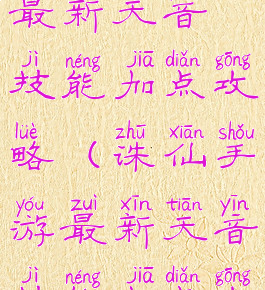 最新天音
jì néng jiā diǎn gōng
技能加点攻
lüè zhū xiān shǒu
略（诛仙手
yóu zuì xīn tiān yīn
游最新天音
jì néng jiā diǎn gōng